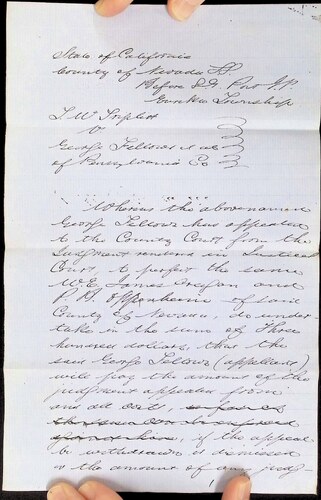 State of California
County of Nevada SS.
Before S. H. Post J.P.
Eureka Township
L W Triplett
v
George Fellows et als
of Pennsylvania Co
Whereas the above named
George Fellows has appealed
to the County Court from the
Judgment rendered in Justices
Court, to perfect the same
We James Creegan and
P. H. Oppenheim of said
County of Nevada, do under-
take in the sum of Three
hundred dollars, that the
said George Fellows (appellant)
will pay the amount of the
judgment appealed from
and all costs,
if the appeal
be withdrawn or dismissed
or the amount of any judg-